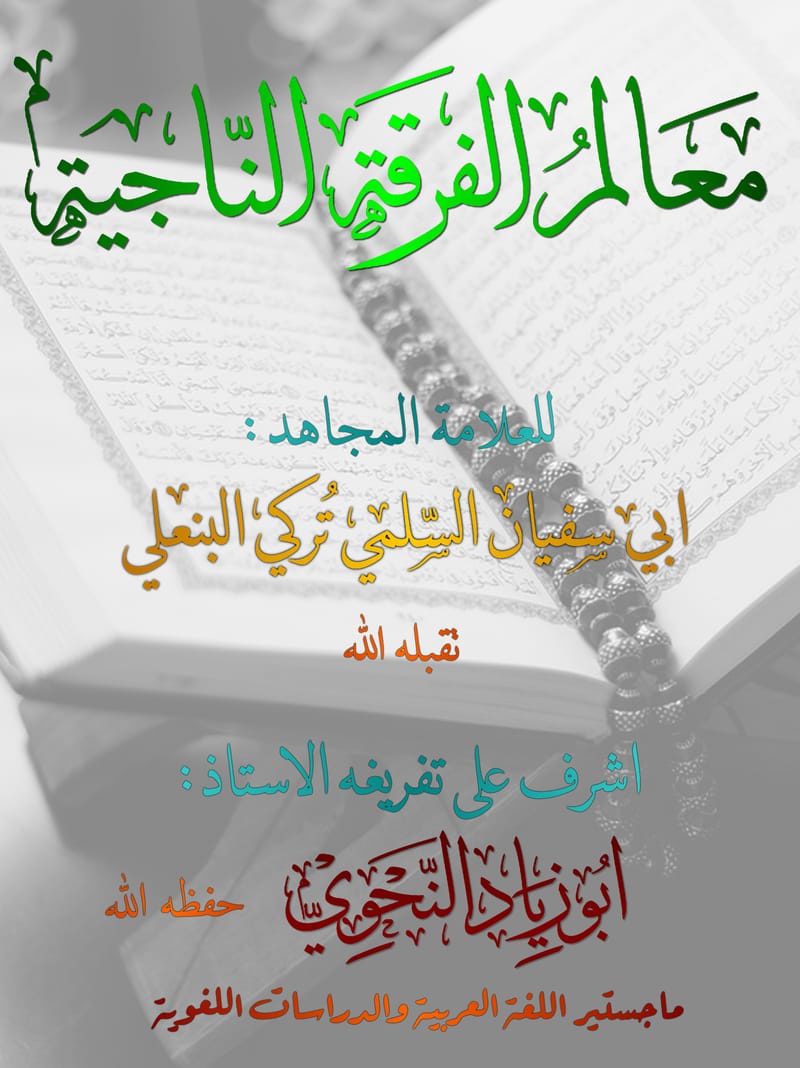 معالمُ الفرقة النّاجية
للعلامة المجاهد :
ابي سفيان السّلمي تُركي البنعلي
تقبله الله
اشرف على تفريغه الاستاذ :
ابُو زِيَاد النَّحَوِيّ حفظه الله
ماجستير اللغة العربية والدراسات اللغوية